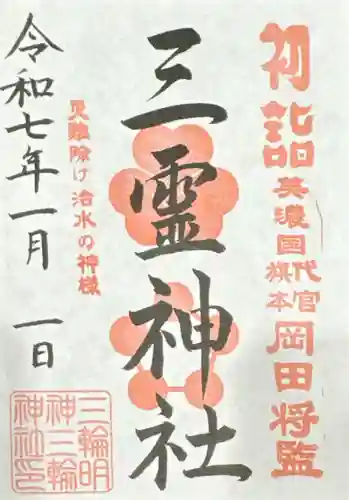 初詣
美濃国
旗本 代官
岡田将監
三霊神社
災難除け治水の神様
令和七年一月一日
三輪明
神三輪
神社印